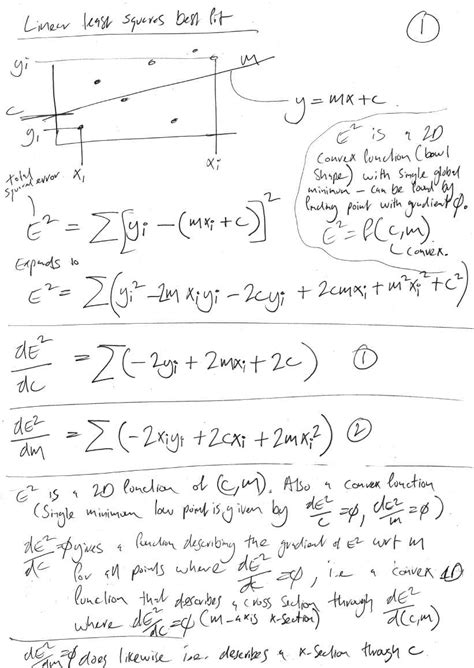 Linear least squares best fit
①
yi
m
c
y = mx + c
y₁
x₁
xi
E² is a 2D
convex function (bowl
shape) with single global
minimum – can be found by
finding point with gradient φ.
E² = f(c,m)
convex.
total
squared error
E² = Σ[yi − (mxi + c)]²
Expands to
E² = Σ(yi² − 2mxiyi − 2cyi + 2cmxi + m²xi² + c²)
dE²/dc = Σ(−2yi + 2mxi + 2c) ①
dE²/dm = Σ(−2xiyi + 2cxi + 2mxi²) ②
E² is a 2D function of (c,m). Also a convex function
(Single minimum low point is given by dE²/c = φ, dE²/m = φ)
dE²/dc = φ gives a function describing the gradient of E² wrt m
for all points where dE²/dc = φ, i.e a convex 1D
function that describes a cross section through dE²/d(c,m)
where dE²/dc = φ (m-axis x-section)
dE²/dm = φ does likewise i.e. describes a x-section through c